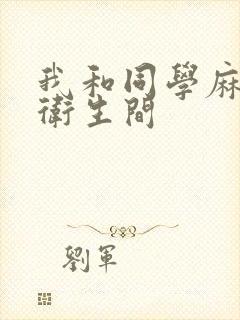 我和同學麻
衛生間
劉軍